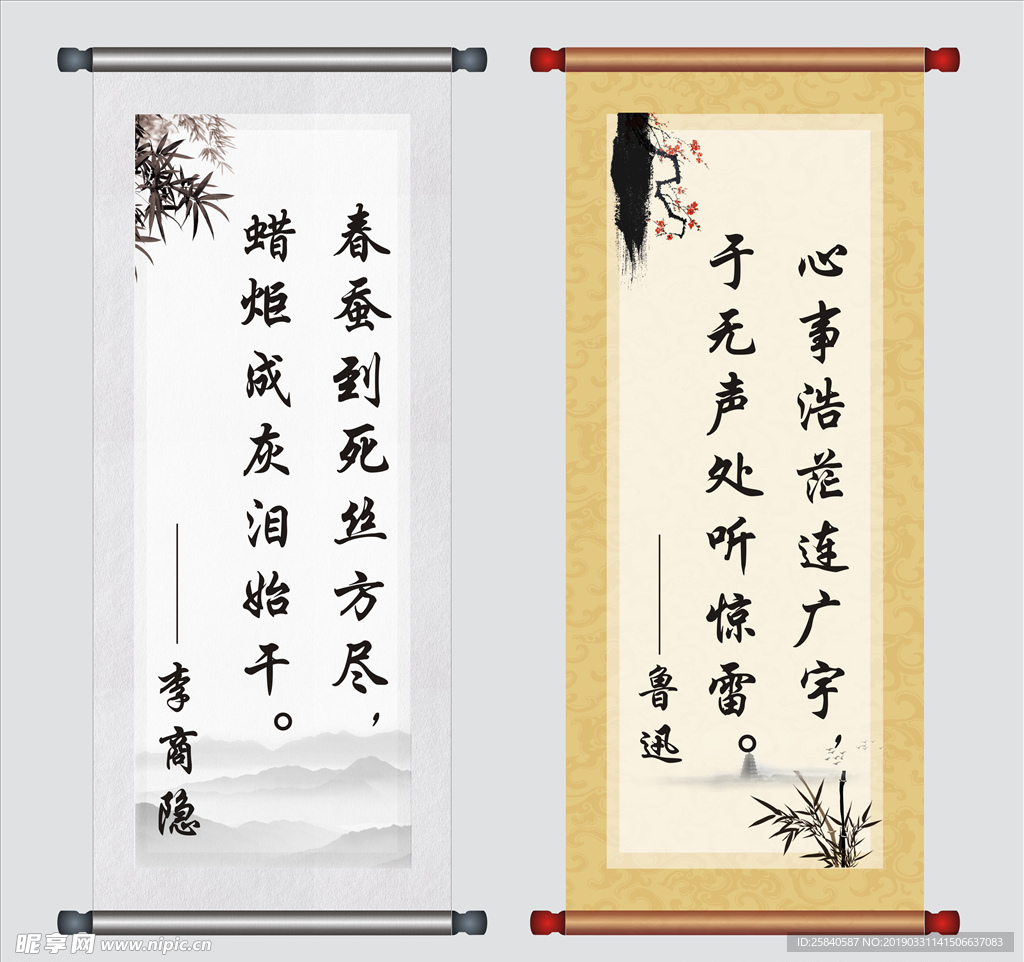 春蚕到死丝方尽，
蜡炬成灰泪始干。
——李商隐
心事浩茫连广宇，
于无声处听惊雷。
——鲁迅
昵享网 www.nipic.cn
ID:25840587 NO:20190331141506637083